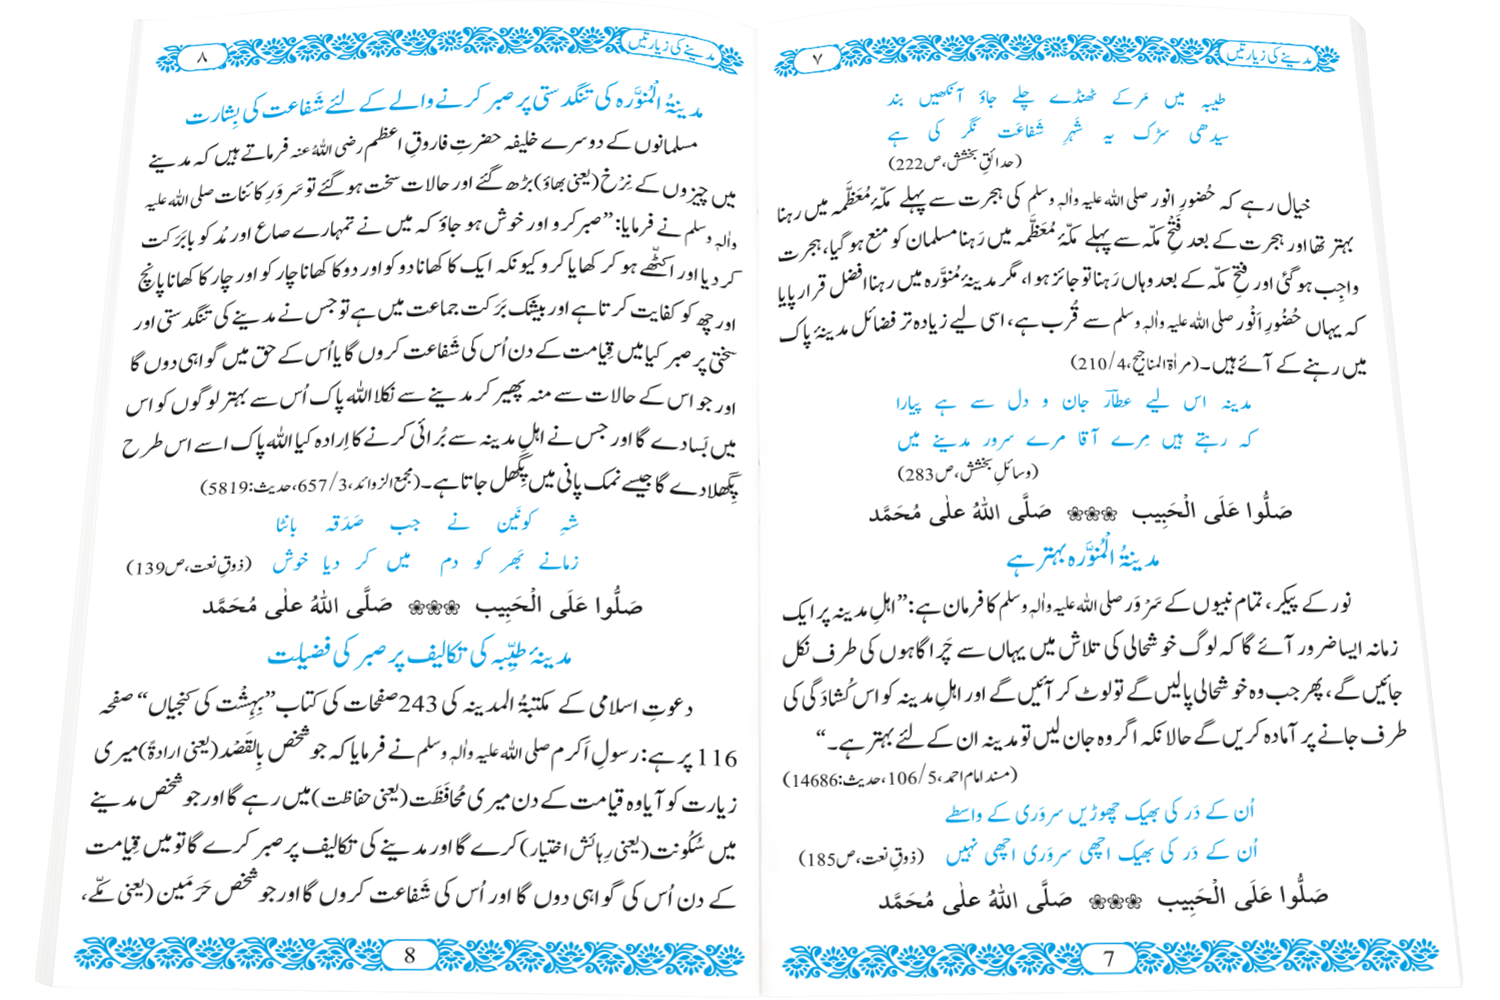 مدینے کی زیارتیں
۷
طیبہ میں مَر کے ٹھنڈے چلے جاؤ آنکھیں بند
سیدھی سڑک یہ شَہرِ شَفاعَت نگر کی ہے
(حدائقِ بخشش،ص222)
خیال رہے کہ حُضورِ انور صلی اللہ علیہ واٰلہٖ وسلم کی ہجرت سے پہلے مکّۂ مُعَظَّمہ میں رہنا
بہتر تھا اور ہجرت کے بعد فَتْحِ مکّہ سے پہلے مکّۂ مُعَظَّمہ میں رَہنا مسلمان کو منع ہوگیا، ہجرت
واجِب ہوگئی اور فتحِ مکّہ کے بعد وہاں رَہنا تو جائز ہوا، مگر مدینۂ مُنوَّرہ میں رہنا افضل قرار پایا
کہ یہاں حُضُورِ اَنْور صلی اللہ علیہ واٰلہٖ وسلم سے قُرب ہے، اسی لیے زیادہ تر فضائل مدینۂ پاک
میں رہنے کے آئے ہیں۔ (مراٰۃ المناجیح،4/210)
مدینہ اس لیے عطّارؔ جان و دل سے ہے پیارا
کہ رہتے ہیں مِرے آقا مرے سرور مدینے میں
(وسائلِ بخشش،ص283)
صَلُّوا عَلَی الْحَبِیب ❀❀❀ صَلَّی اللّٰہُ علٰی مُحَمَّد
مدینۃُ الْمُنوَّرہ بہتر ہے
نور کے پیکر، تمام نبیوں کے سَرْوَر صلی اللہ علیہ واٰلہٖ وسلم کا فرمان ہے: ”اہلِ مدینہ پر ایک
زمانہ ایسا ضرور آئے گا کہ لوگ خوشحالی کی تلاش میں یہاں سے چَراگاہوں کی طرف نکل
جائیں گے، پھر جب وہ خوشحالی پالیں گے تو لوٹ کر آئیں گے اور اہلِ مدینہ کو اس کُشادَگی کی
طرف جانے پر آمادہ کریں گے حالانکہ اگر وہ جان لیں تو مدینہ ان کے لئے بہتر ہے۔“
(مسند امام احمد،5/106،حدیث:14686)
اُن کے دَر کی بھیک چھوڑیں سروَری کے واسطے
اُن کے دَر کی بھیک اچھی سروَری اچھی نہیں (ذوقِ نعت،ص185)
صَلُّوا عَلَی الْحَبِیب ❀❀❀ صَلَّی اللّٰہُ علٰی مُحَمَّد
7
مدینے کی زیارتیں
۸
مدینۃُ الْمُنوَّرہ کی تنگدستی پر صبر کرنے والے کے لئے شَفاعت کی بِشارت
مسلمانوں کے دوسرے خلیفہ حضرتِ فاروقِ اعظم رضی اللہُ عنہ فرماتے ہیں کہ مدینے
میں چیزوں کے نِرْخ (یعنی بھاؤ) بڑھ گئے اور حالات سخت ہوگئے تو سَروَرِ کائنات صلی اللہ علیہ
واٰلہٖ وسلم نے فرمایا: ”صبر کرو اور خوش ہو جاؤ کہ میں نے تمہارے صاع اور مُد کو بابَرَکت
کر دیا اور اکٹّھے ہو کر کھایا کرو کیونکہ ایک کا کھانا دو کو اور دو کا کھانا چار کو اور چار کا کھانا پانچ
اور چھ کو کفایت کرتا ہے اور بیشک بَرَکت جماعت میں ہے تو جس نے مدینے کی تنگدستی اور
سختی پر صبر کیا میں قِیامت کے دن اُس کی شَفاعت کروں گا یا اُس کے حق میں گواہی دوں گا
اور جو اس کے حالات سے منہ پھیر کر مدینے سے نکلا اللہ پاک اُس سے بہتر لوگوں کو اس
میں بَسا دے گا اور جس نے اہلِ مدینہ سے بُرائی کرنے کا اِرادہ کیا اللہ پاک اسے اس طرح
پِگھلا دے گا جیسے نمک پانی میں پِگھل جاتا ہے۔ (مجمع الزوائد،3/657،حدیث:5819)
شہِ کونَین نے جب صَدَقہ بانٹا
زمانے بَھر کو دم میں کر دیا خوش (ذوقِ نعت،ص139)
صَلُّوا عَلَی الْحَبِیب ❀❀❀ صَلَّی اللّٰہُ علٰی مُحَمَّد
مدینۂ طیِّبہ کی تکالیف پر صبر کی فضیلت
دعوتِ اسلامی کے مکتبۃُ المدینہ کی 243 صفحات کی کتاب ”بِہِشْت کی کنجیاں“ صفحہ
116 پر ہے: رسولِ اَکرم صلی اللہ علیہ واٰلہٖ وسلم نے فرمایا کہ جو شخص بِالْقَصْد (یعنی ارادۃً) میری
زیارت کو آیا وہ قیامت کے دن میری مُحافَظَت (یعنی حفاظت) میں رہے گا اور جو شخص مدینے
میں سُکُونت (یعنی رِہائش اختیار) کرے گا اور مدینے کی تکالیف پر صبر کرے گا تو میں قِیامت
کے دن اُس کی گواہی دوں گا اور اُس کی شَفاعت کروں گا اور جو شخص حَرَمَین (یعنی مکّے،
8